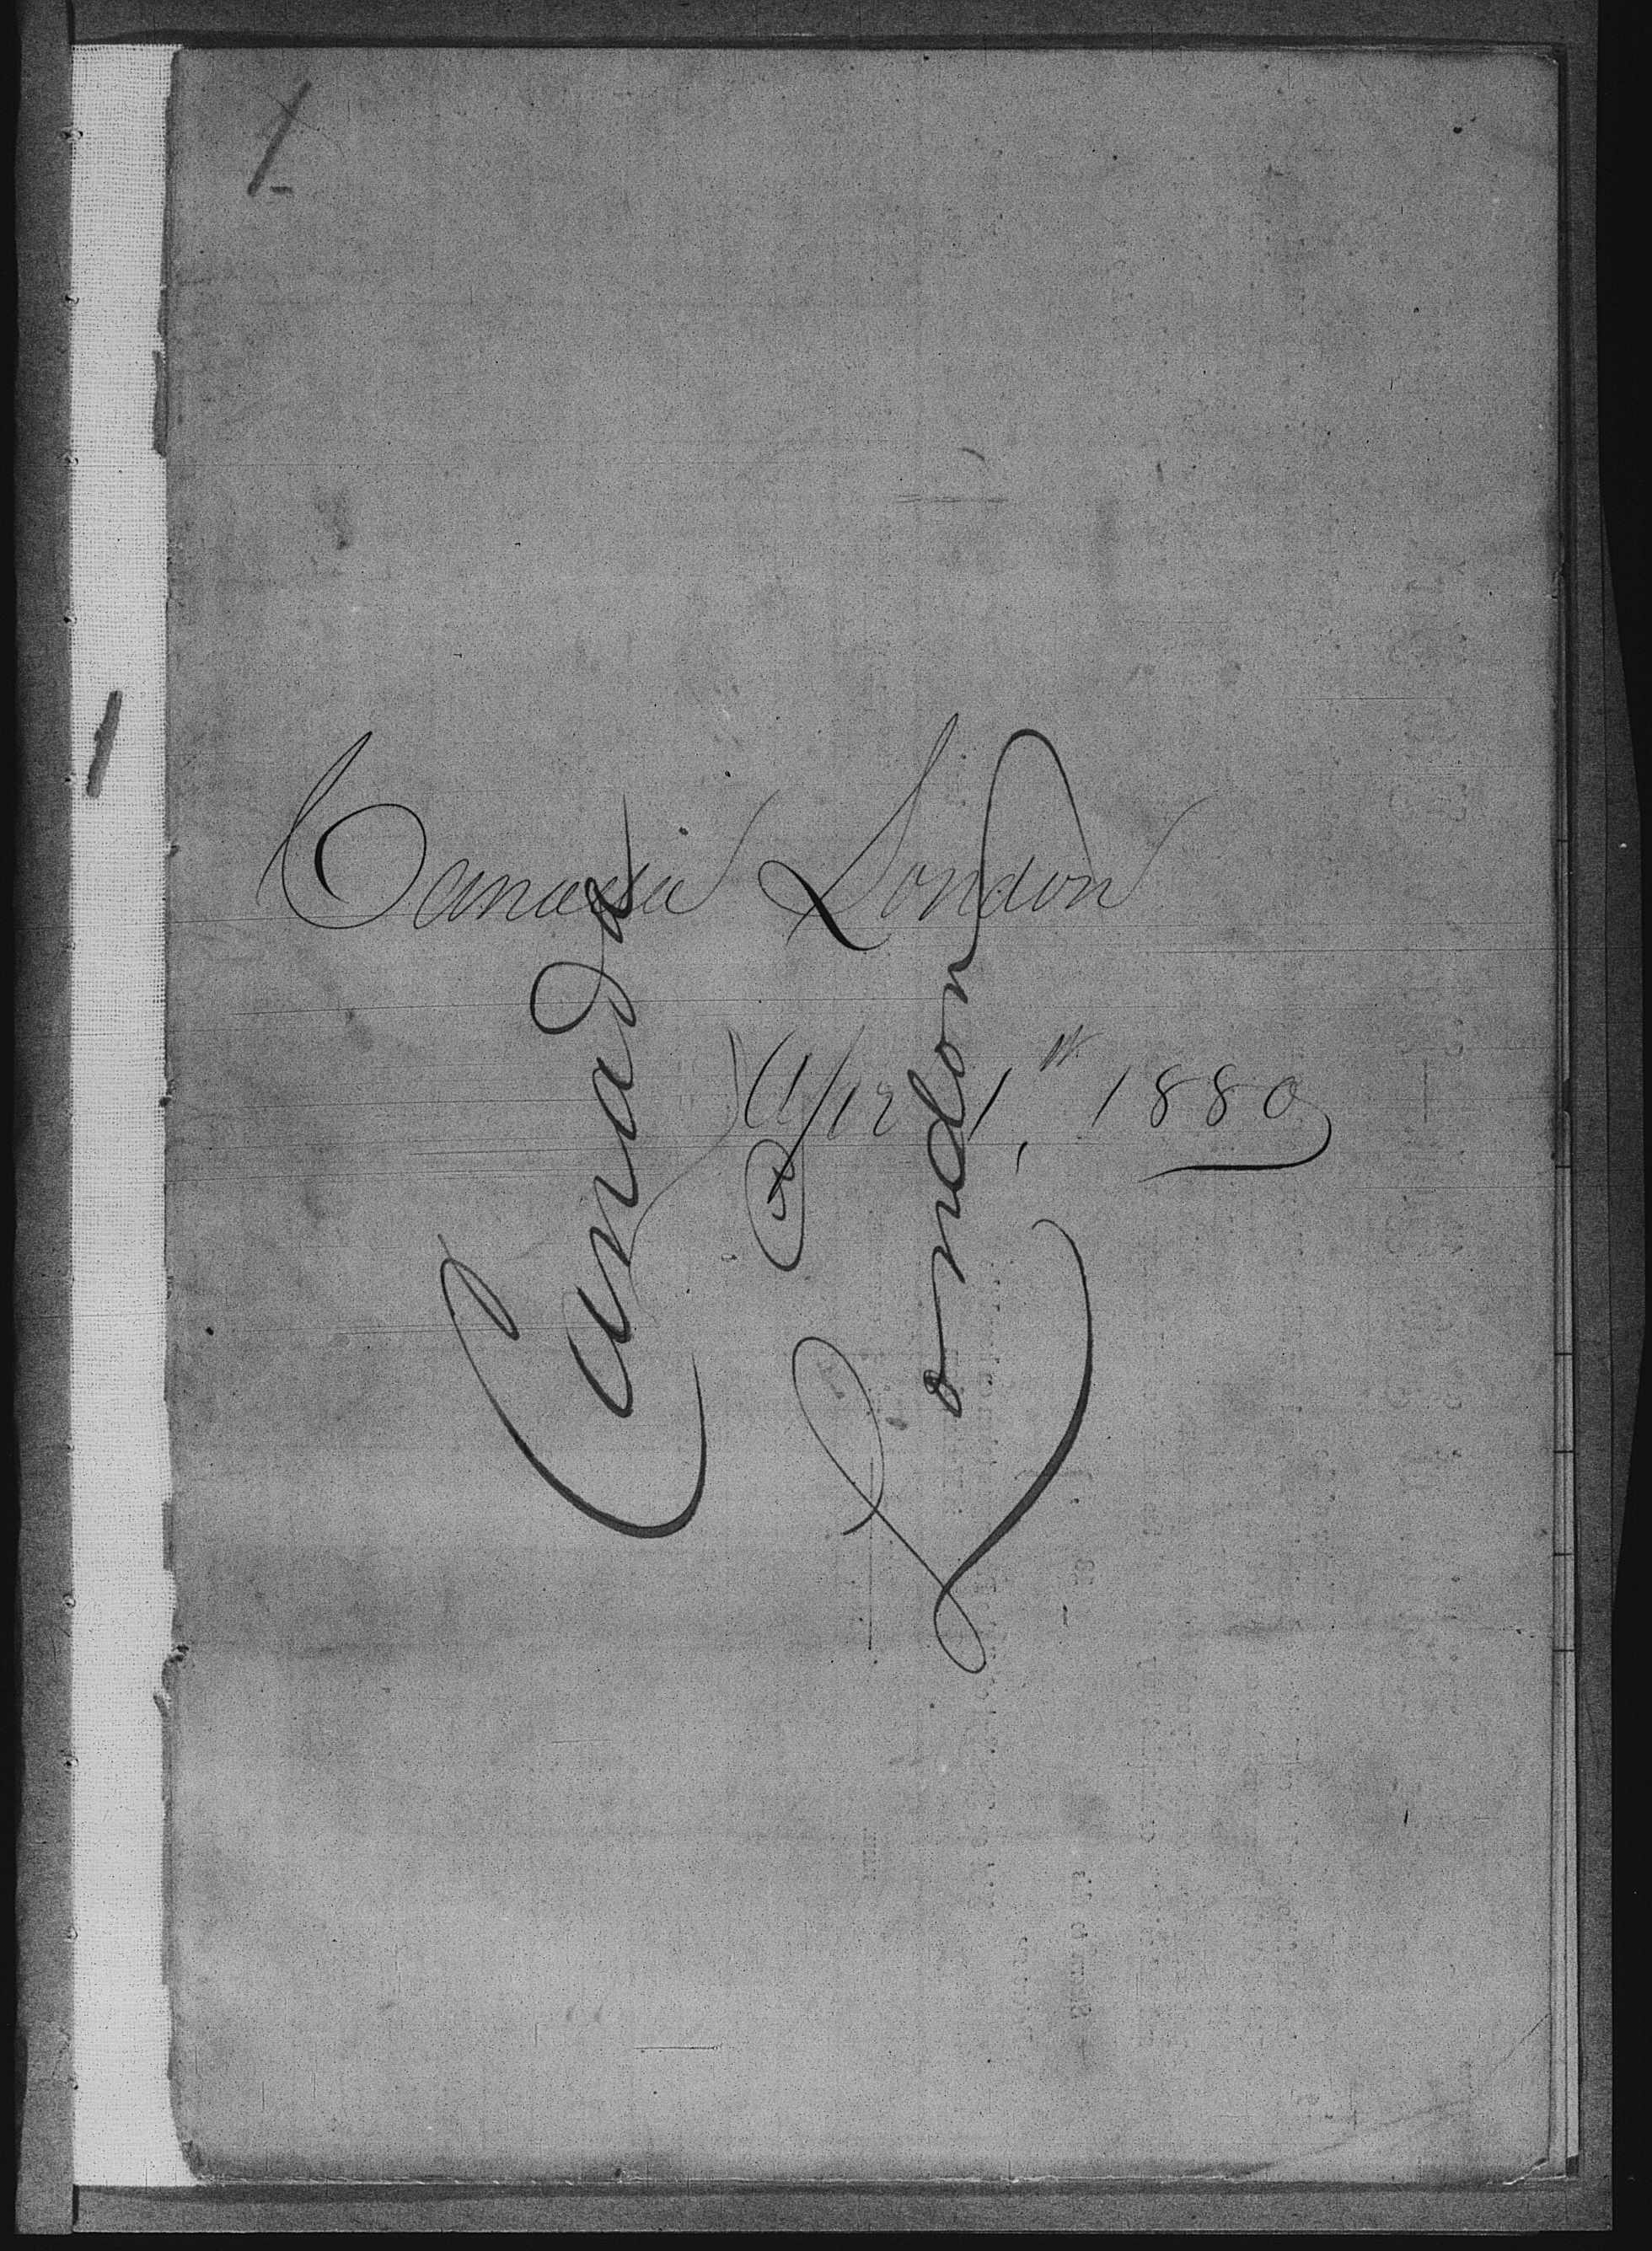 1
1
Canada London
Apr 1st, 1880
Canada
London